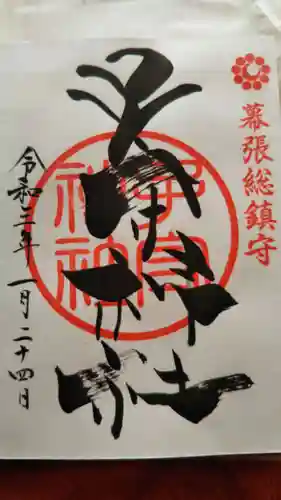 幕張総鎮守
子守神社
子守神社
令和三年 一月二十四日